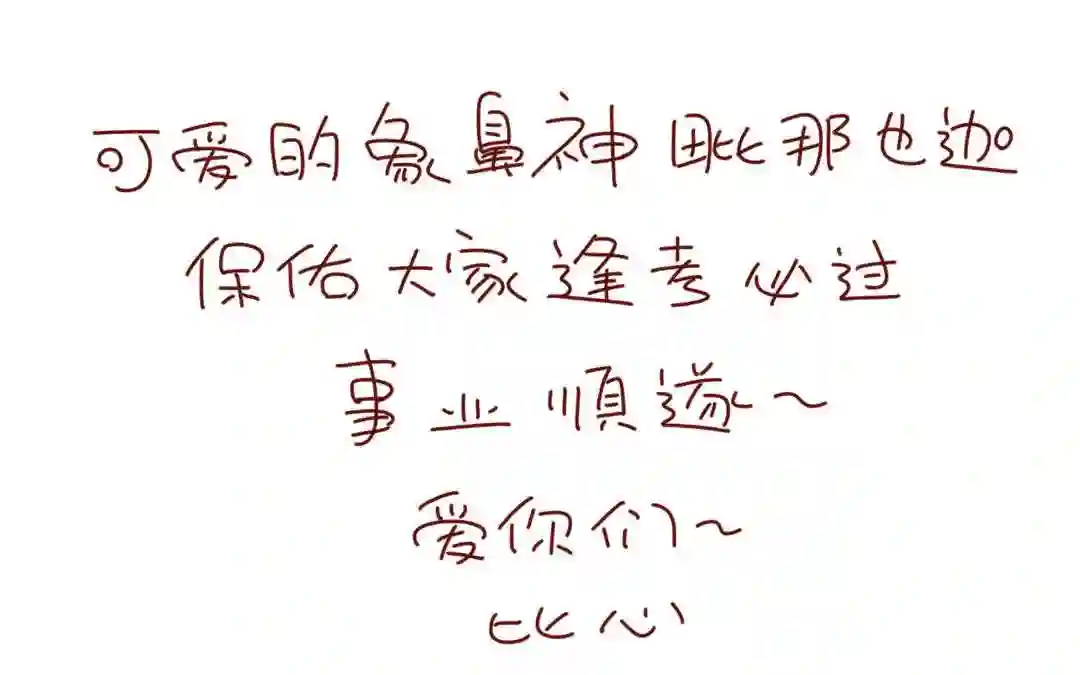 可爱的象鼻神毗那也迦
保佑大家逢考必过
事业順遂～
爱你们～
比心